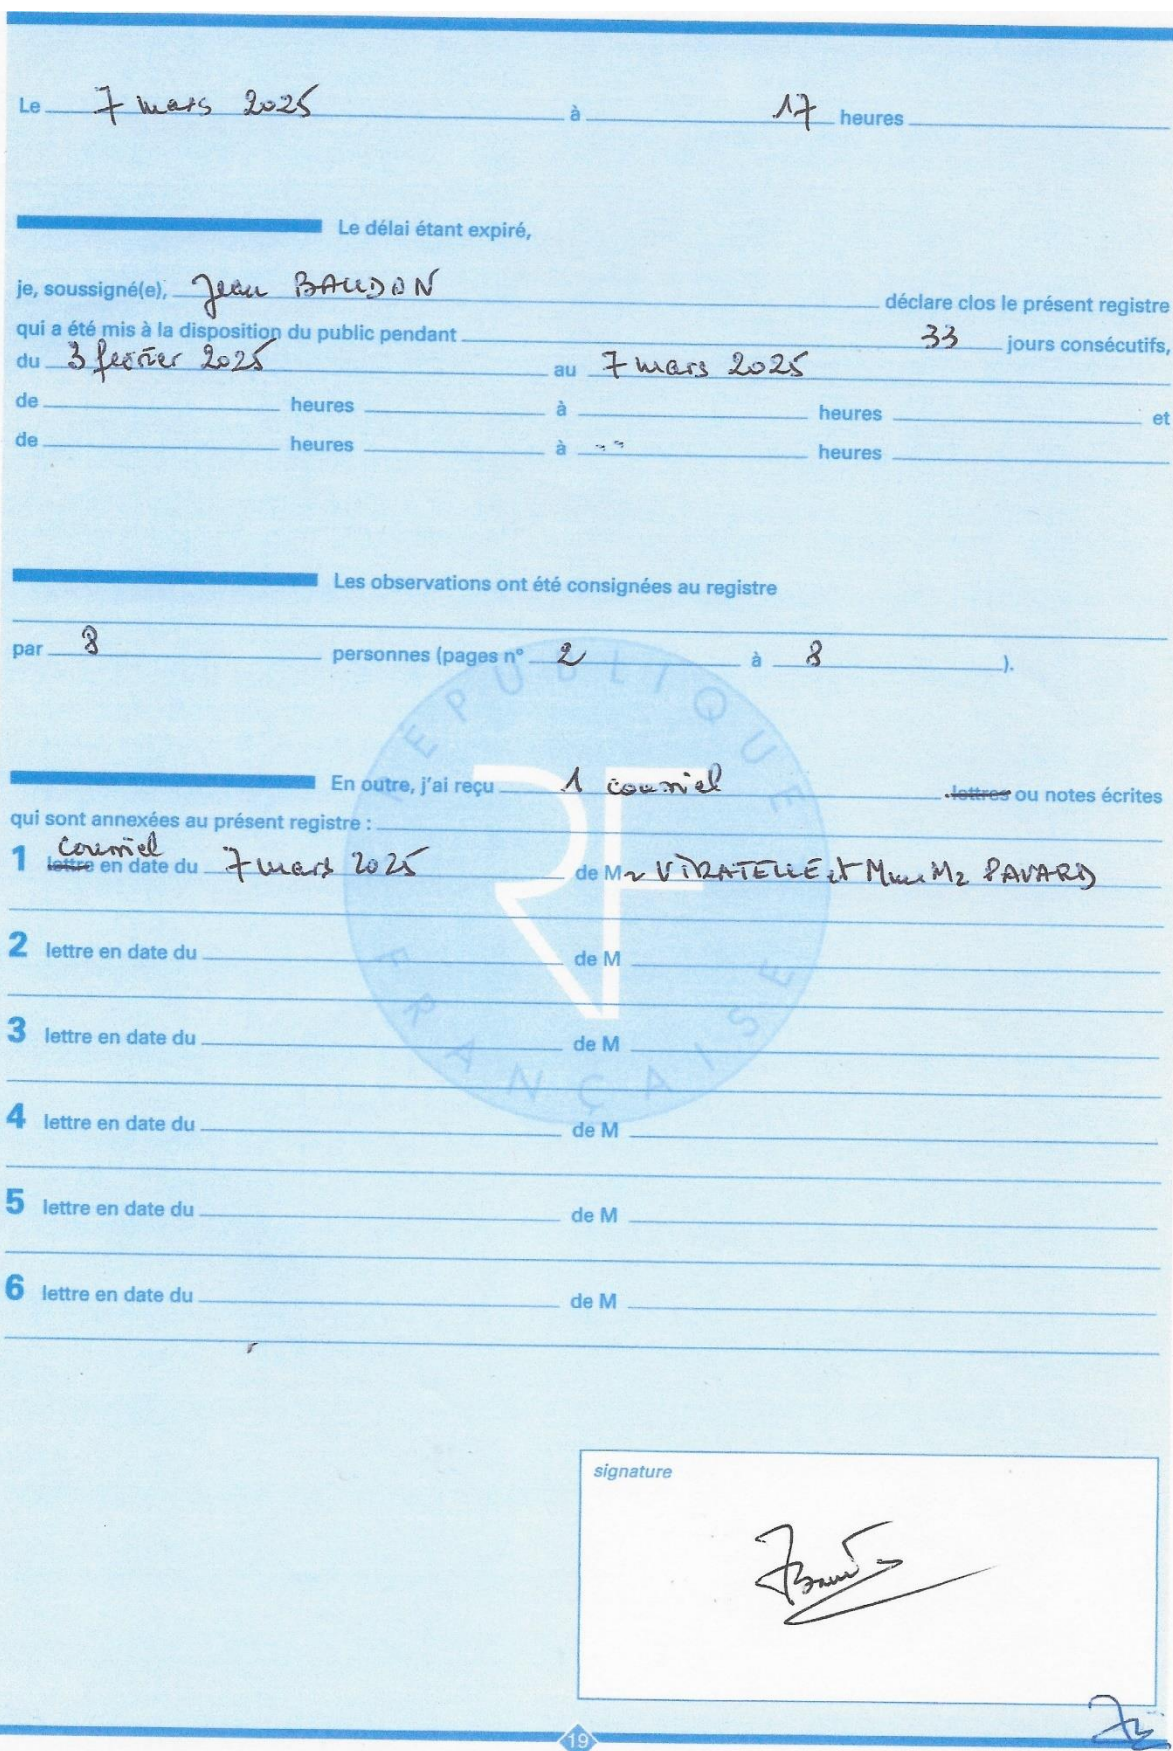 Le 7 mars 2025 à 17 heures
Le délai étant expiré,
je, soussigné(e), Jean BAUDON déclare clos le présent registre
qui a été mis à la disposition du public pendant 33 jours consécutifs,
du 3 février 2025 au 7 mars 2025
de heures à heures et
de heures à heures
Les observations ont été consignées au registre
par 8 personnes (pages n° 2 à 8 ).
En outre, j'ai reçu 1 courriel lettres ou notes écrites
qui sont annexées au présent registre :
courriel
1 lettre en date du 7 mars 2025 de Mr VIRATELLE et Mme Mr PAVARD
2 lettre en date du de M
3 lettre en date du de M
4 lettre en date du de M
5 lettre en date du de M
6 lettre en date du de M
RÉPUBLIQUE FRANÇAISE
RF
signature
19